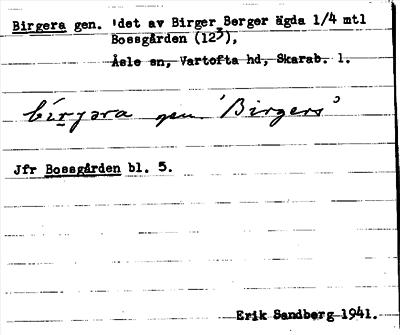 Birgera gen. 'det av Birger Berger ägda 1/4 mtl
Bossgården (12³),
Åsle sn, Vartofta hd, Skarab. l.
bi̍rɟəra gen 'Birgers'
Jfr Bossgården bl. 5.
Erik Sandberg 1941.